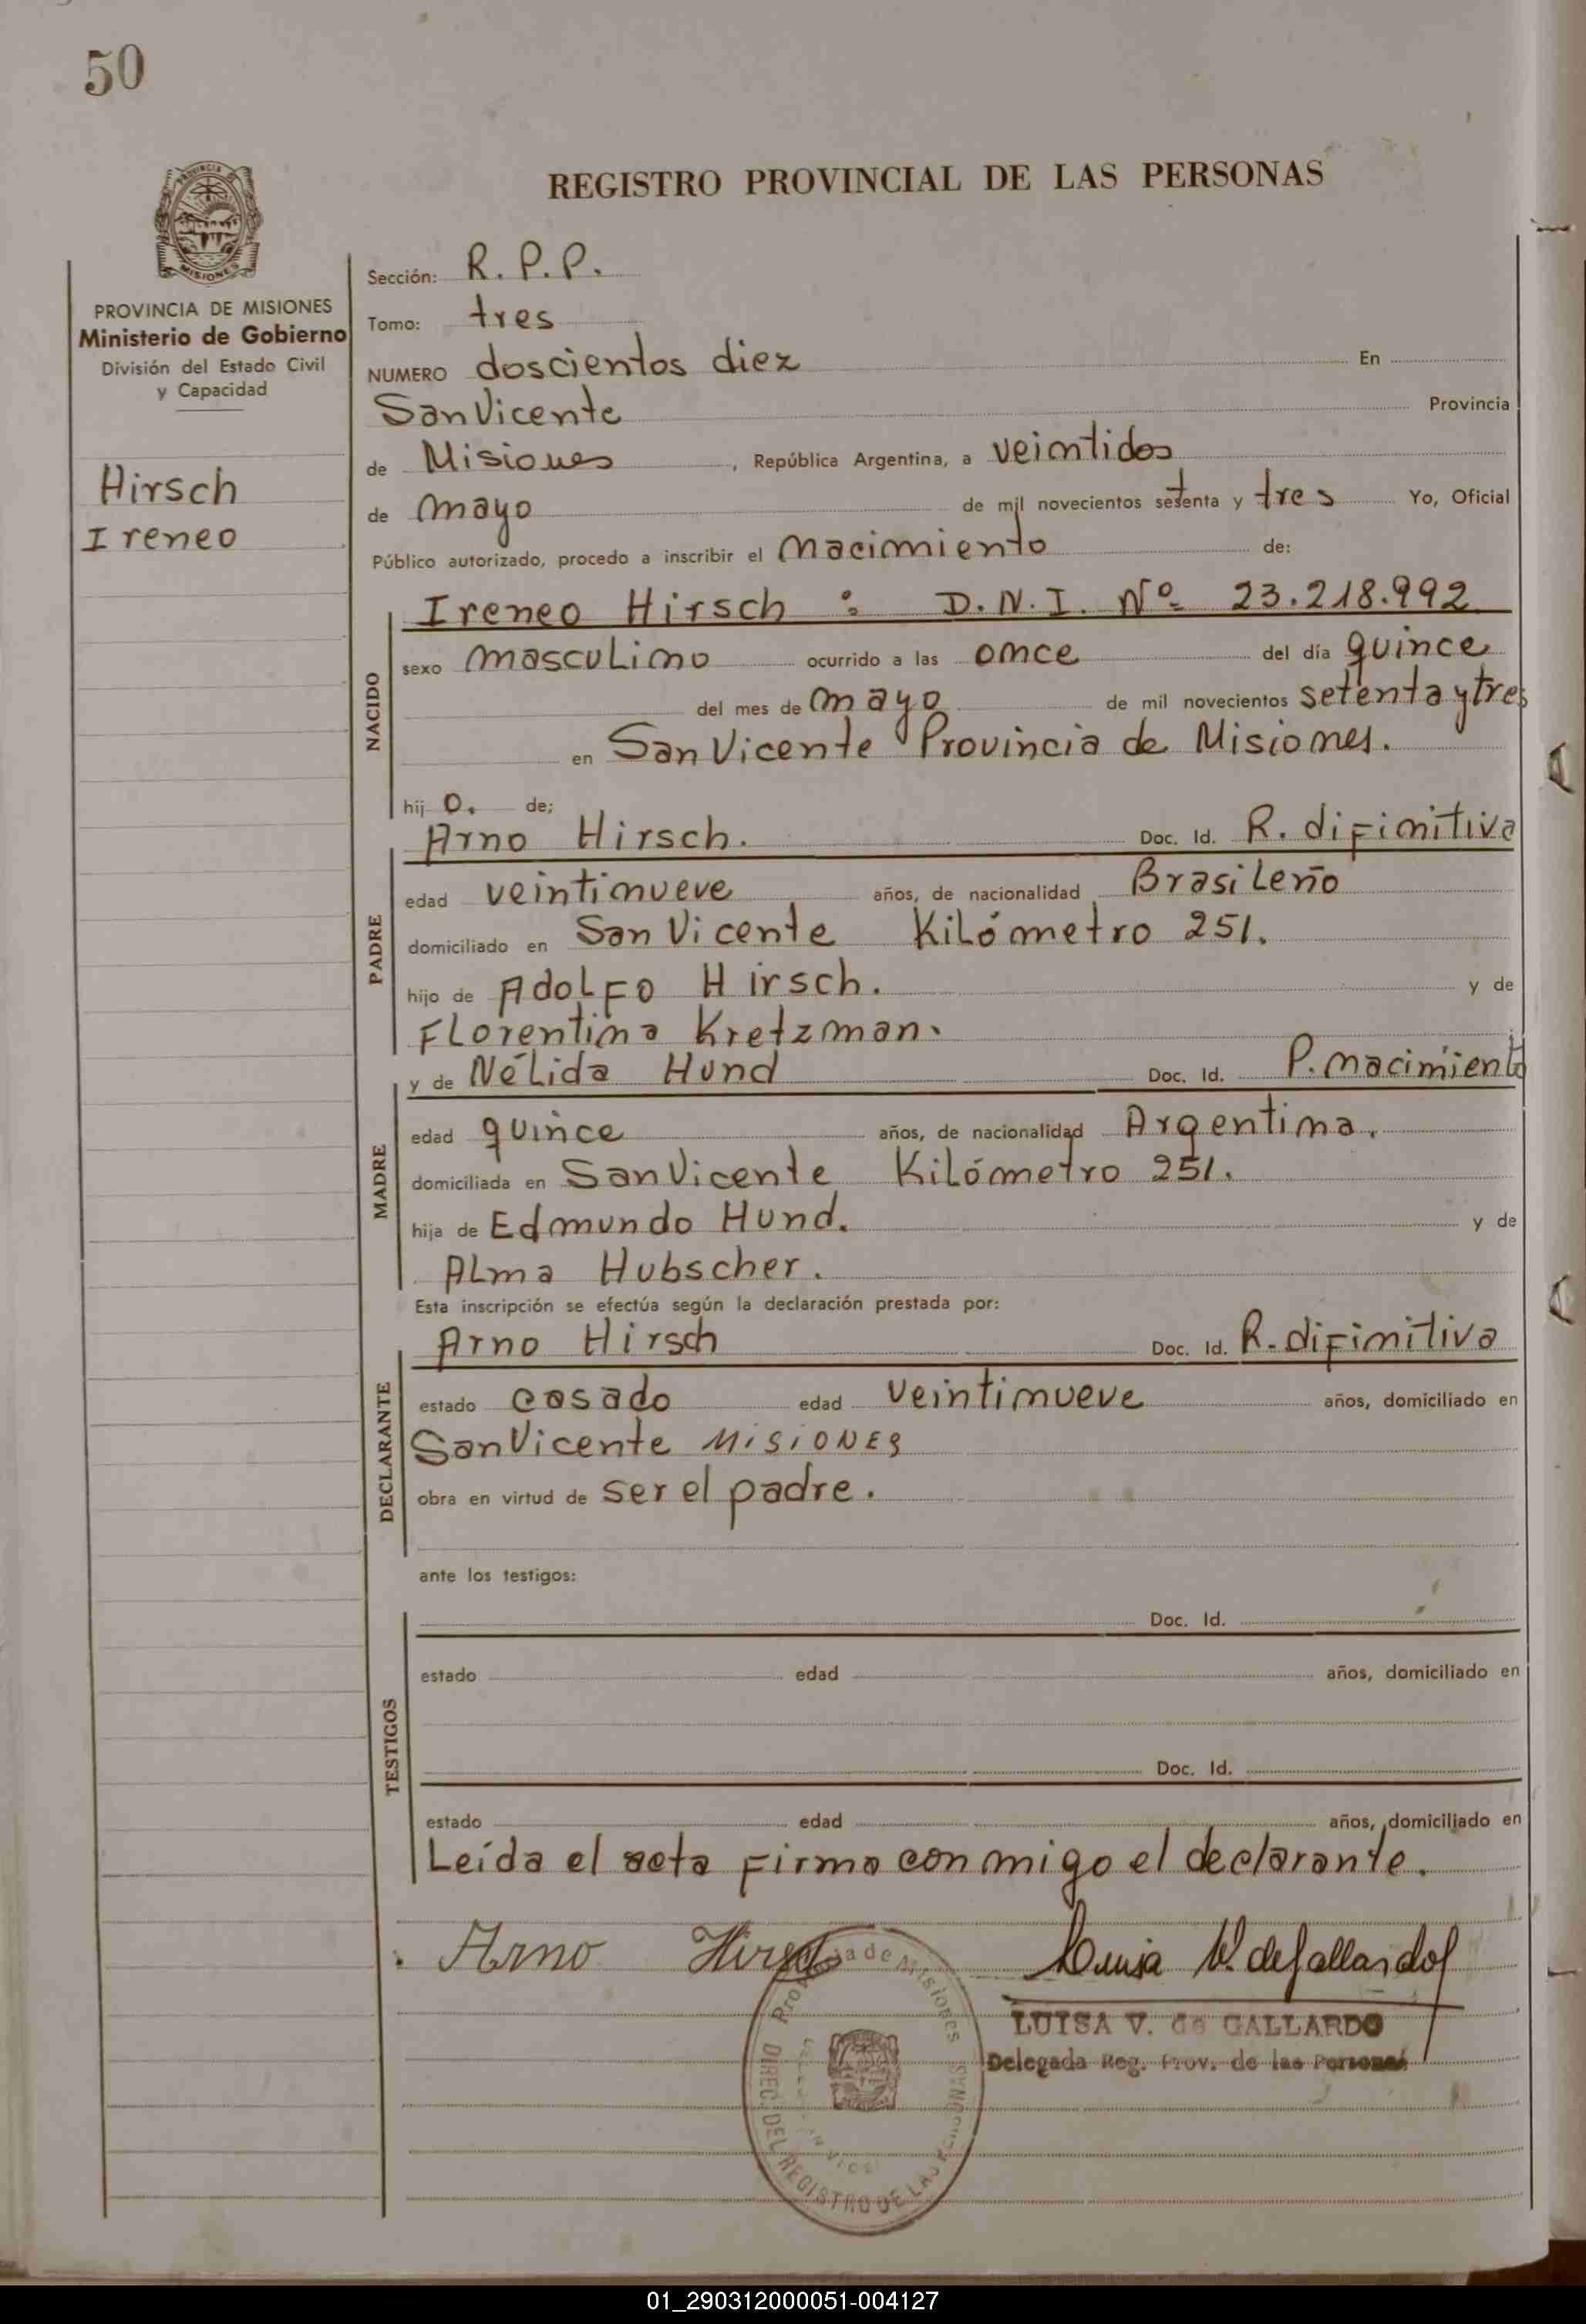 50
REGISTRO PROVINCIAL DE LAS PERSONAS
MISIONES
PROVINCIA DE MISIONES
Ministerio de Gobierno
División del Estado Civil
y Capacidad
Hirsch
Ireneo
Sección: R. P. P.
Tomo: tres
NUMERO doscientos diez En
San Vicente Provincia
de Misiones, República Argentina, a veintidos
de mayo de mil novecientos setenta y tres Yo, Oficial
Público autorizado, procedo a inscribir el nacimiento de:
NACIDO
Ireneo Hirsch : D.N.I. Nº 23.218.992
sexo masculino ocurrido a las once del día quince
del mes de mayo de mil novecientos setenta y tres
en San Vicente Provincia de Misiones.
hij o. de;
PADRE
Arno Hirsch. Doc. Id. R. difinitiva
edad veintinueve años, de nacionalidad Brasileño
domiciliado en San Vicente Kilómetro 251.
hijo de Adolfo Hirsch. y de
Florentina Kretzman.
MADRE
y de Nélida Hund Doc. Id. P. nacimiento
edad quince años, de nacionalidad Argentina.
domiciliada en San Vicente Kilómetro 251.
hija de Edmundo Hund. y de
Alma Hubscher.
Esta inscripción se efectúa según la declaración prestada por:
DECLARANTE
Arno Hirsch Doc. Id. R. difinitiva
estado casado edad veintinueve años, domiciliado en
San Vicente MISIONES
obra en virtud de ser el padre.
ante los testigos:
TESTIGOS
Doc. Id.
estado edad años, domiciliado en
Doc. Id.
estado edad años, domiciliado en
Leída el acta firma conmigo el declarante.
Arno Hirsch Luisa V. de Gallardo
Provincia de Misiones
DIREC. DEL REGISTRO DE LAS PERSONAS
LUISA V. de GALLARDO
Delegada Reg. Prov. de las Personas
01_290312000051-004127